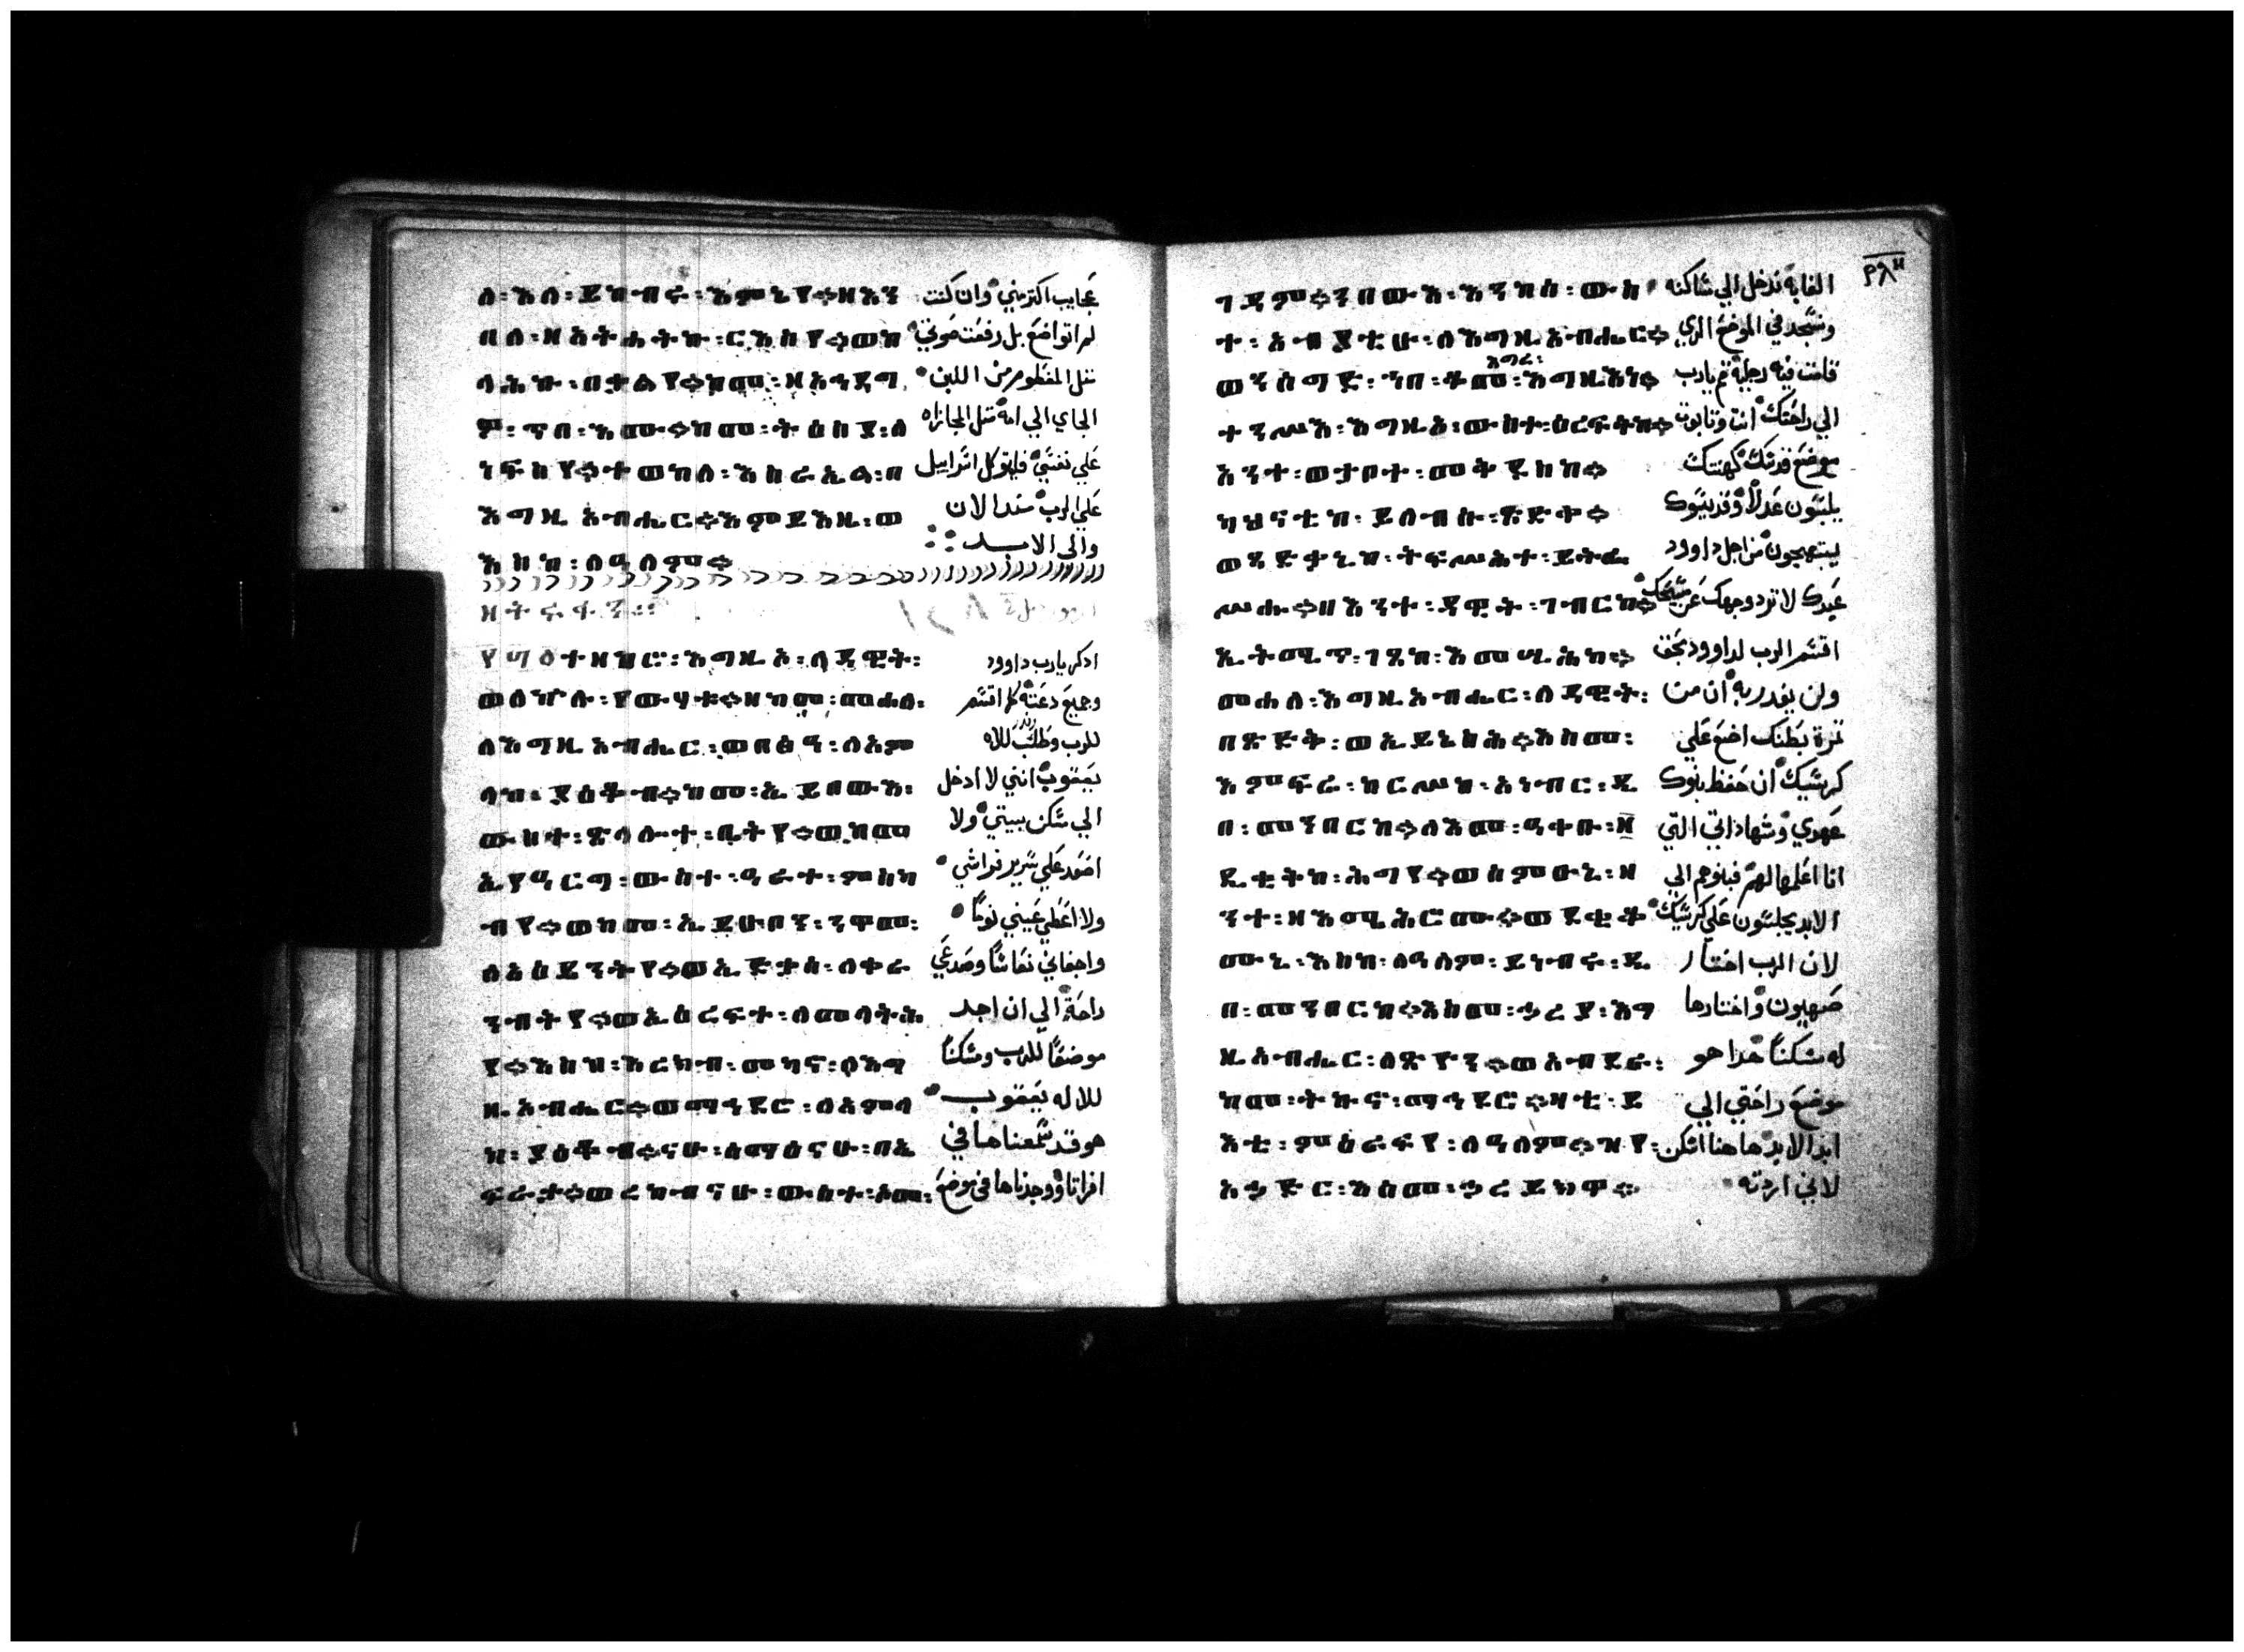 ለ፡እለ፡ይከብሩ፡እምኔየ።ዘእን عجايب اكتر مني وان كنت
በለ፡ዘአትሐትኩ፡ርእስየ።ወከ لم اتواضع بل رفعت صوتي
ላእኩ፡በቃልየ።ከመ፡ዘአኅደግ متل المفطوم من اللبن
ዎ፡ጥበ፡እሙ።ከመ፡ትዕስያ፡ለ الجاي الي امه متل المجازاه
ነፍስየ።ተወከለ፡እስራኤል፡በ علي نفسي فليتوكل اسراييل
እግዚአብሔር።እምይእዜ፡ወ علي الرب منذ الان
እስከ፡ለዓለም። والي الابد
ተዘከሮ፡እግዚኦ፡ለዳዊት፡ اذكر يارب داوود
ወለኵሉ፡የውሃቱ።ዘከመ፡መሐለ፡ وجميع دعته كما اقسم
ለእግዚአብሔር፡ወበፅዓ፡ለአም للرب للاه
ላከ፡ያዕቆብ።ከመ፡ኢይበውእ፡ يعقوب انني لا ادخل
ውስተ፡ጽላሎተ፡ቤትየ።ወከመ الي مسكن بيتي ولا
ኢየዓርግ፡ውስተ፡ዓራተ፡ምስካ اصعد علي سرير فراشي
ብየ።ወከመ፡ኢይሁቦን፡ንዋመ፡ ولا اعطي عيني نومًا
ለአዕይንትየ።ወኢድቃሰ፡ለቀራ واجفاني نعاسًا وصدغي
ንብትየ።ወኢዕረፍተ፡ለመላትሕ راحة الي ان اجد
የ።እስከ፡እረክብ፡መካኖ፡ለእግ موضعًا للرب ومسكنًا
ዚአብሔር።ወማኅደሮ፡ለአምላ للاله يعقوب
ከ፡ያዕቆብ።ናሁ፡ሰማዕናሁ፡በኤ هو قد سمعناها في
ፍራታ።ወረከብናሁ፡ውስተ፡ኦመ፡ افراتا ووجدناها في موضع
ገዳም።ንበውእ፡አንከሰ፡ውስ الغابة ندخل الي مساكنه
ተ፡አብያቲሁ፡ለእግዚአብሔር። ونسجد في الموضع الذي
ወንሰግድ፡ኀበ፡ቆመ፡እግሩ፡እግዚእነ። قامت فيه رجليه قم يارب
ተንሥእ፡እግዚኦ፡ውስተ፡ዕረፍትከ። الي راحتك انت وتابوت
አንተ፡ወታቦተ፡መቅደስከ። موضع قدسك كهنتك
ካህናቲከ፡ይለብሱ፡ጽድቀ። يلبسون عدلًا وقديسوك
ወጻድቃኒከ፡ትፍሥሕተ፡ይትፌ يبتهجون من اجل داوود
ሥሑ።በእንተ፡ዳዊት፡ገብርከ። عبدك لا ترد وجهك عن مسيحك
ኢትሚጥ፡ገጸከ፡እመሲሕከ። اقسم الرب لداوود بحق
መሐለ፡እግዚአብሔር፡ለዳዊት፡ ولن يغدر به ان من
በጽድቅ፡ወኢይኔስሕ።እስመ፡ ثمرة بطنك اضع علي
እምፍሬ፡ከርሥከ፡አነብር፡ዲ كرسيك ان حفظ بنوك
በ፡መንበርከ።ለእመ፡ዓቀቡ፡ዘ عهدي وشهاداتي التي
ደቂቅከ፡ሕግየ።ወስምዑኒ፡ዘ انا اعلمها لهم فبنوهم الي
ንተ፡ዘእሜሕሮሙ።ወደቂቆ الابد يجلسون علي كرسيك
ሙኒ፡እስከ፡ለዓለም፡ይነብሩ፡ዲ لان الرب اختار
በ፡መንበርከ።እስመ፡ኃረያ፡እግ صهيون واختارها
ዚአብሔር፡ለጽዮን።ወአብደራ፡ له مسكنًا هذا هو
ከመ፡ትኩኖ፡ማኅደሮ።ዛቲ፡ይ موضع راحتي الي
እቲ፡ምዕራፍየ፡ለዓለም።ዝየ፡ ابد الابد هاهنا اسكن
አኃድር፡እስመ፡ኃረይክዋ። لاني اردته